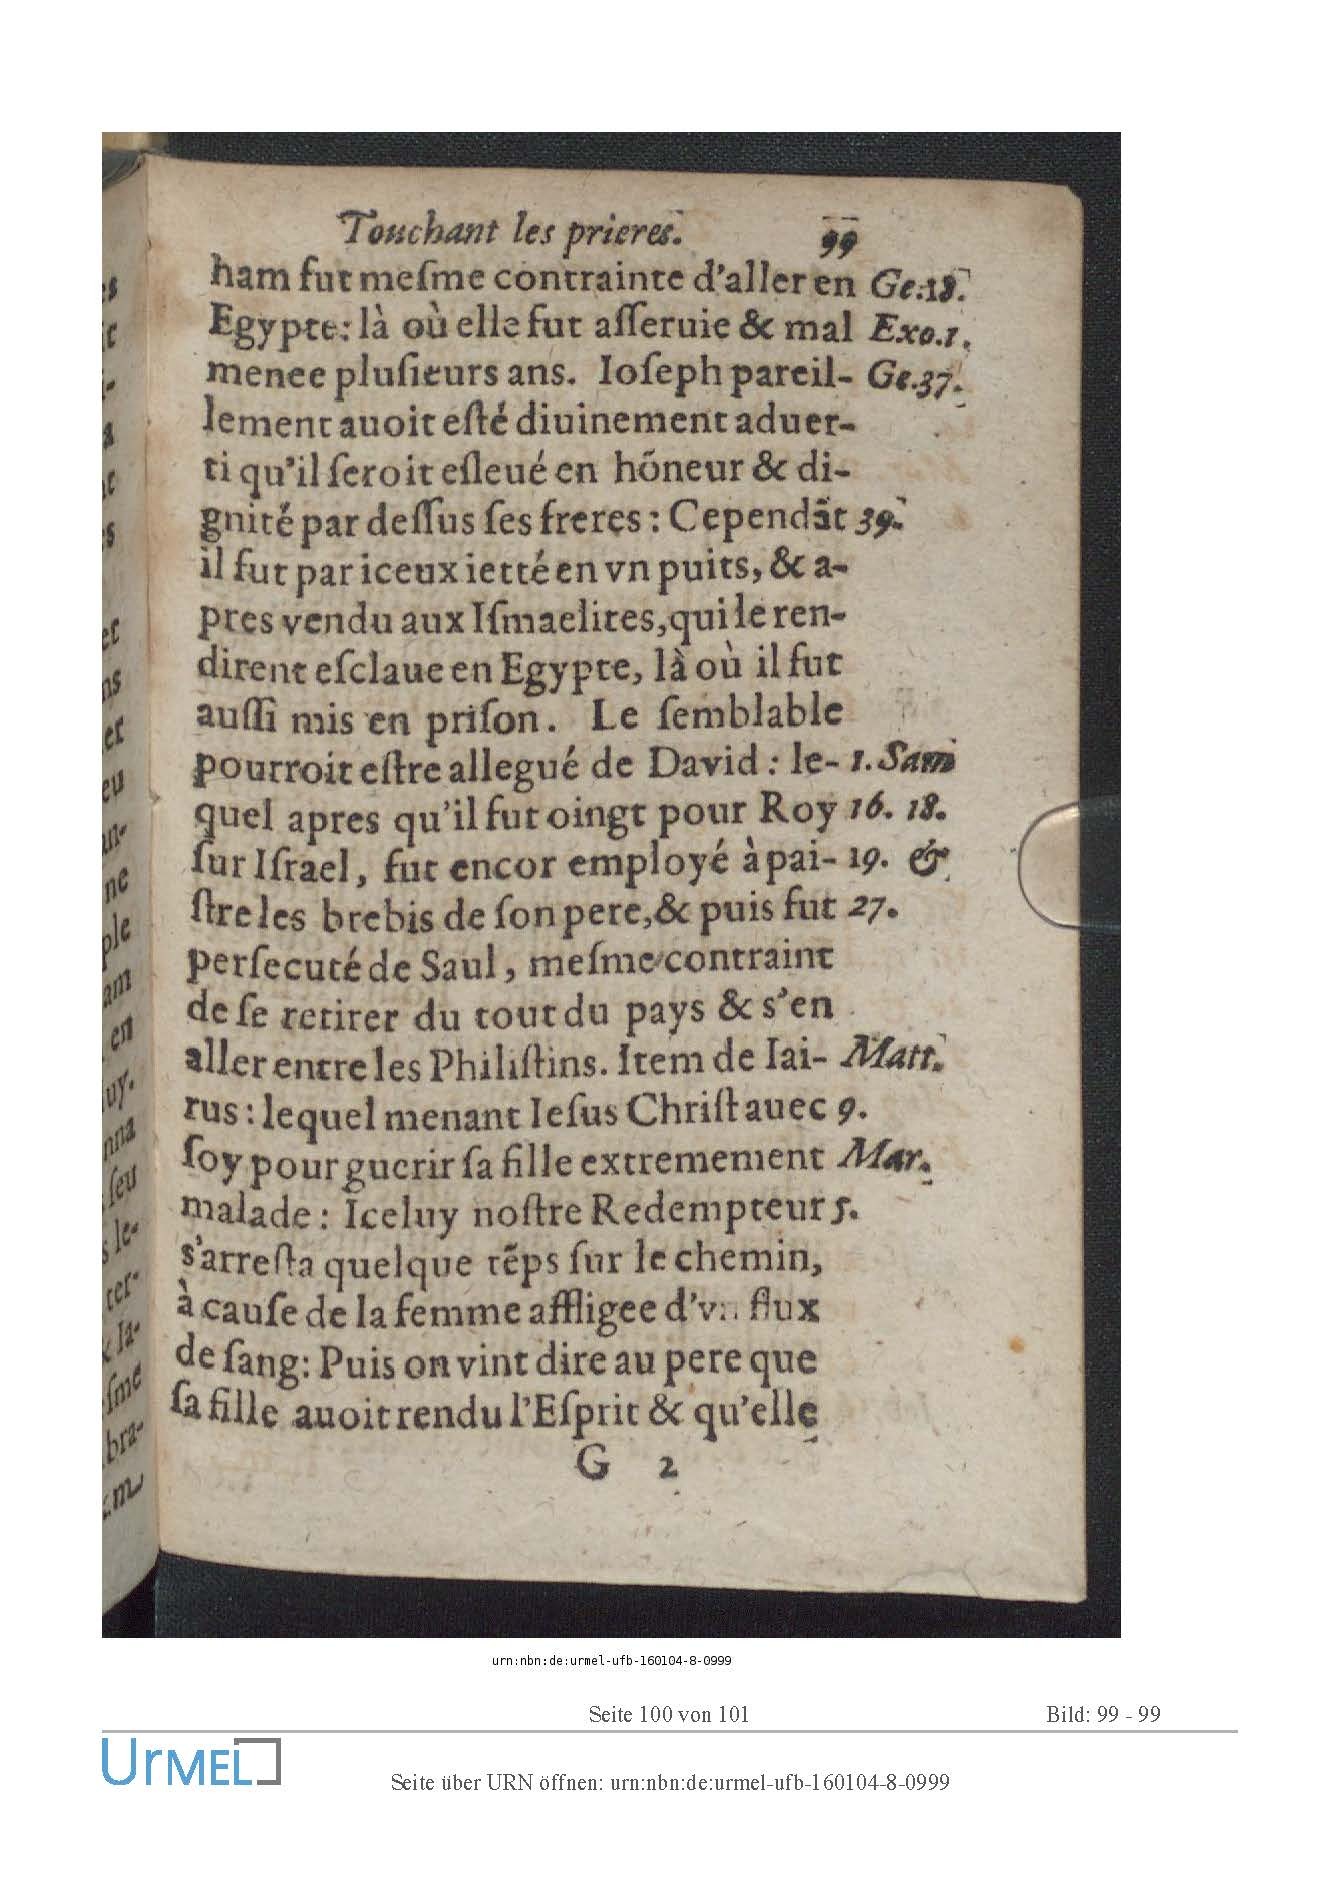 Touchant les prieres. 99
ham fut meſme contrainte d'aller en Ge.18.
Egypte: là où elle fut aſſeruie & mal Exo.1.
menee pluſieurs ans. Ioſeph pareil- Ge.37.
lement auoit eſté diuinement aduer-
ti qu'il ſeroit eſleué en hõneur & di-
gnité par deſſus ſes freres : Cependãt 39.
il fut par iceux ietté en vn puits, & a-
pres vendu aux Iſmaelites, qui le ren-
dirent eſclaue en Egypte, là où il fut
auſſi mis en priſon. Le ſemblable
pourroit eſtre allegué de David : le- 1. Sam
quel apres qu'il fut oingt pour Roy 16. 18.
ſur Iſrael, fut encor employé à pai- 19. &
ſtre les brebis de ſon pere, & puis fut 27.
perſecuté de Saul, meſme contraint
de ſe retirer du tout du pays & s'en
aller entre les Philiſtins. Item de Iai- Matt.
rus : lequel menant Ieſus Chriſt auec 9.
ſoy pour guerir ſa fille extremement Mar.
malade : Iceluy noſtre Redempteur 5.
s'arreſta quelque tẽps ſur le chemin,
à cauſe de la femme affligee d'vn flux
de ſang: Puis on vint dire au pere que
ſa fille auoit rendu l'Eſprit & qu'elle
G 2
urn:nbn:de:urmel-ufb-160104-8-0999
Seite 100 von 101 Bild: 99 - 99
UrMEL
Seite über URN öffnen: urn:nbn:de:urmel-ufb-160104-8-0999